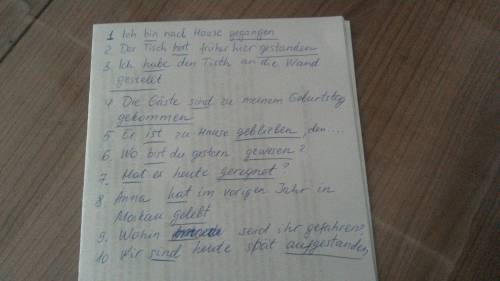 1 Ich bin nach Hause gegangen
2. Der Tisch hat früher hier gestanden
3. Ich habe den Tisch an die Wand
gestellt
4 Die Gäste sind zu meinem Geburtstag
gekommen
5 Er ist zu Hause geblieben, den...
6. Wo bist du gestern gewesen?
7. Hat es heute geregnet?
8. Anna hat im vorigen Jahr in
Moskau gelebt
9. Wohin seid ihr gefahren?
10 Wir sind heute spät aufgestanden